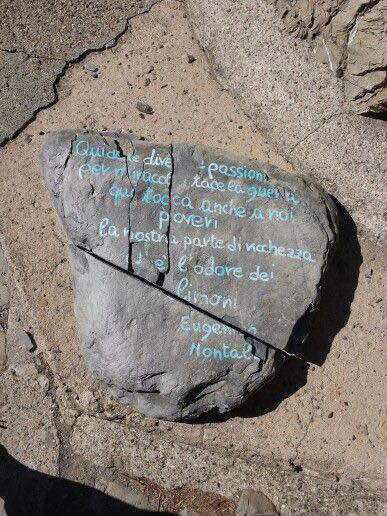 Qui delle dive passioni
per miraco tace la guerra
qui tocca anche a noi
poveri
la nostra parte di ricchezza
ed e' l'odore dei
limoni
Eugenio
Montale